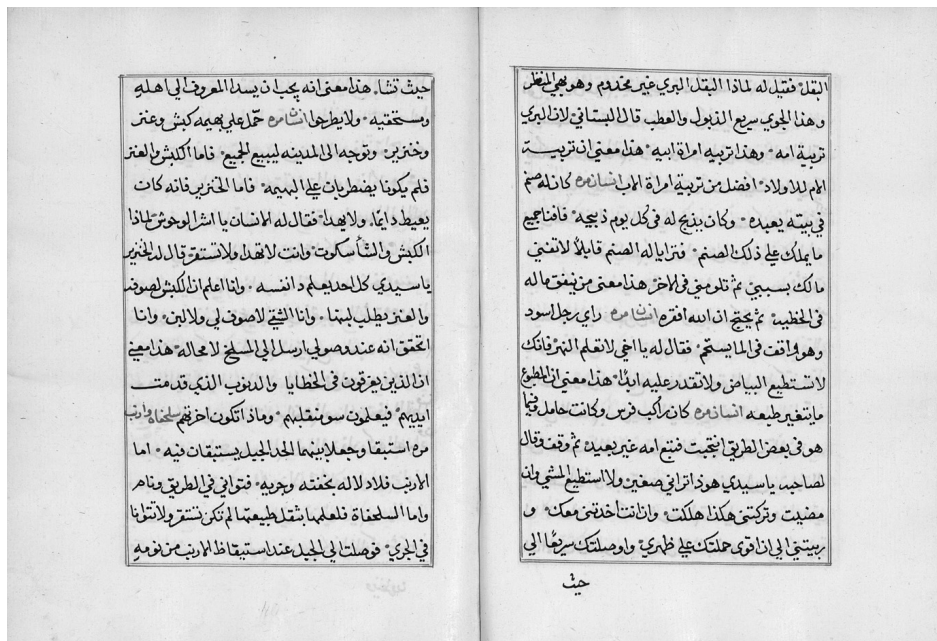 البقل فقيل له لماذا البقل البري غير مخدوم وهو بهي المنظر
وهذا الجوي سريع الذبول والعطب قال البستاني لان البري
تربية امه وهذا تربيه امراة ابيه هذا معني ان تربيـة
الام للاولاد افضل من تربية امراة الاب انسان مره كان له صنم
في بيته يعبده وكان يذبح له في كل يوم ذبيحه فافنا جميع
ما يملك علي ذلك الصنم فترايا له الصنم قايلا لا تفني
مالك بسببي ثم تلومني في الاخر هذا معني من ينفق ماله
في الخطيه ثم يحتج ان الله افقره انسان مره راي رجل اسود
وهو واقفت في الما يستحم فقال له يا اخي لا تعلم النهر فانك
لا تستطيع البياض ولا تقدر عليه ابدا هذا معني ان المطبوع
ما يتغير طبعه انسان مره كان راكب فرس وكانت حامل وفيما
هو في بعض الطريق انتجبت فتبع امه غير بعيد ثم وقف وقال
لصاحبه يا سيدي هوذا تراني صغير ولا استطيع المشي وان
مضيت وتركتني هكذا هلكت وان انت اخذتني معك و
ربيتني الي ان اقوي حملتك علي ظهري واوصلتك سريعا الي
حيث
حيث تشا هذا معني انه يجب ان يسدا المعروف الي اهله
ومستحقيه ولا يطرحوا انسان مره حمل علي بهيمه كبش وعنز
وخنزير وتوجه الي المدينه ليبيع الجميع فاما الكبش والعنز
فلم يكونا يضطربان علي البهيمة فاما الخنزير فانه كان
يعيط دايما ولا يهدا فقال له الانسان يا اشر الوحوش لماذا
الكبش والشا سكوت وانت لا تهدا ولا تستقر قال له الخنزير
يا سيدي كل احد يعلم دا نفسه وانا اعلم ان الكبش لصوفه
والعنز يطلب لبنها وانا الشقي لا صوف لي ولا لبن وانا
اتحقق انه عند وصولي ارسل الي المسلخ لا محاله هذا معني
ان الذين يغرقون في الخطايا والدنوب الذي قدمت
ايديهم فيعلمون سو منقلبهم وماذا تكون اخرتهم سلحفاه وارنب
مره استبقا وجعلا بينهما الحد الجبل يستبقان فيه اما
الارنب فلاد لاله بخفته وجريه فتواني في الطريق ونام
واما السلحفاة فلعلمها بثقل طبيعتها لم تكن تستقر ولا تتوانا
في الجري فوصلت الي الجبل عند استيقاظ الارنب من نومه